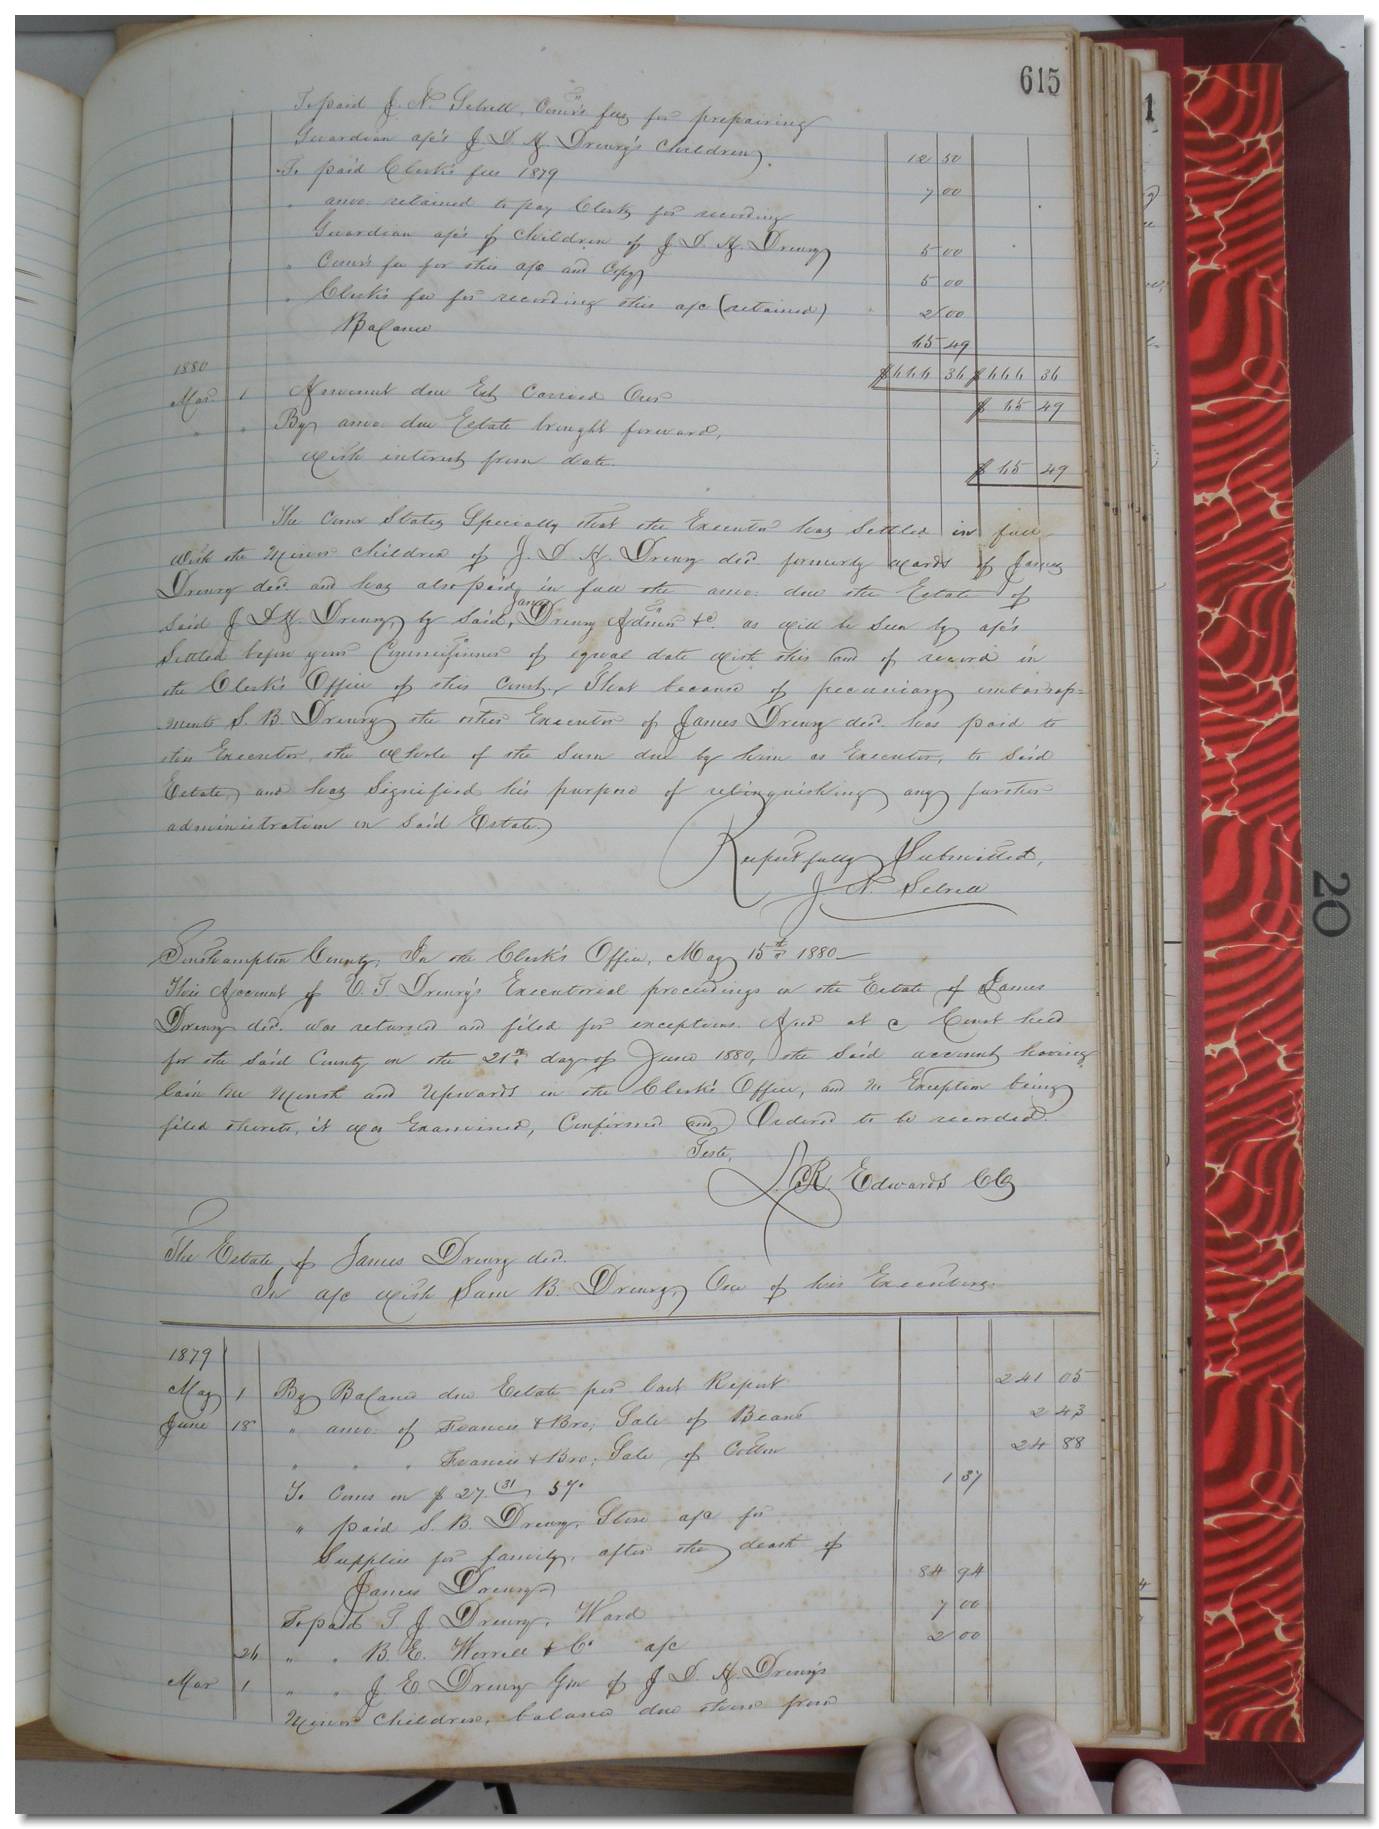 615
1
To paid J. N. Sebrell, Comr's fees for prepairing
Guardian a/c's J. D. H. Drewry's Children,
12 50
To paid Clerk's fees 1879
7 00
" amo. retained to pay Clerk for recording
Guardian a/c's of Children of J. D. H. Drewry
5 00
" Comr's fee for this a/c and Copy
5 00
" Clerk's fee for recording this a/c (retained)
2 00
Balance
65 49
1880
$666 36 $666 36
Mar 1 Amount due Est Carried Over
$ 65 49
" " By amo. due Estate brought forward,
with interest from date.
$ 65 49
The Comr States Specially that the Executor has Settled in full
with the Minor Children of J. D. H. Drewry decd. formerly wards of James
Drewry decd. and has also paid in full the amo: due the Estate of
Said J. D. H. Drewry, by Said, James Drewry Admr &c. as will be Seen by a/c's
Settled before your Commissioner of equal date with this and of record in
the Clerk's Office of this Court. That because of pecuniary embarrass=
ments S. B. Drewry the other Executor of James Drewry decd. has paid to
this Executor, the whole of the Sum due by him as Executor, to Said
Estate, and has Signified his purpose of relinquishing any further
administration on Said Estate.
Respectfully Submitted,
J. N. Sebrell
Southampton County, In the Clerk's Office, May 15th 1880—
This Account of E. T. Drewry's Executorial proceedings on the Estate of James
Drewry decd. was returned and filed for exceptions. And at a Court held
for the Said County on the 21st day of June 1880, the Said account having
lain one Month and Upwards in the Clerk's Office, and no Exception being
filed thereto, it was Examined, Confirmed and Ordered to be recorded.
Teste,
L. R. Edwards CC
The Estate of James Drewry decd.
In a/c with Sam B. Drewry, One of his Executors.
1879
May 1 By Balance due Estate per last Report
241 05
June 18 " amo. of Francis & Bro; Sale of Beans
2 43
" " " Francis & Bro; Sale of Cotton
24 88
To Coms on $ 27 31 5%
1 37
" paid S. B. Drewry, Store a/c for
Supplies for family, after the death of
James Drewry
84 94
To paid T. J. Drewry, Ward
7 00
26 " " B. E. Worrell & Co a/c
2 00
Mar 1 " " J. E. Drewry Gdn of J. D. H. Drewry's
Minor Children, balance due them from
20